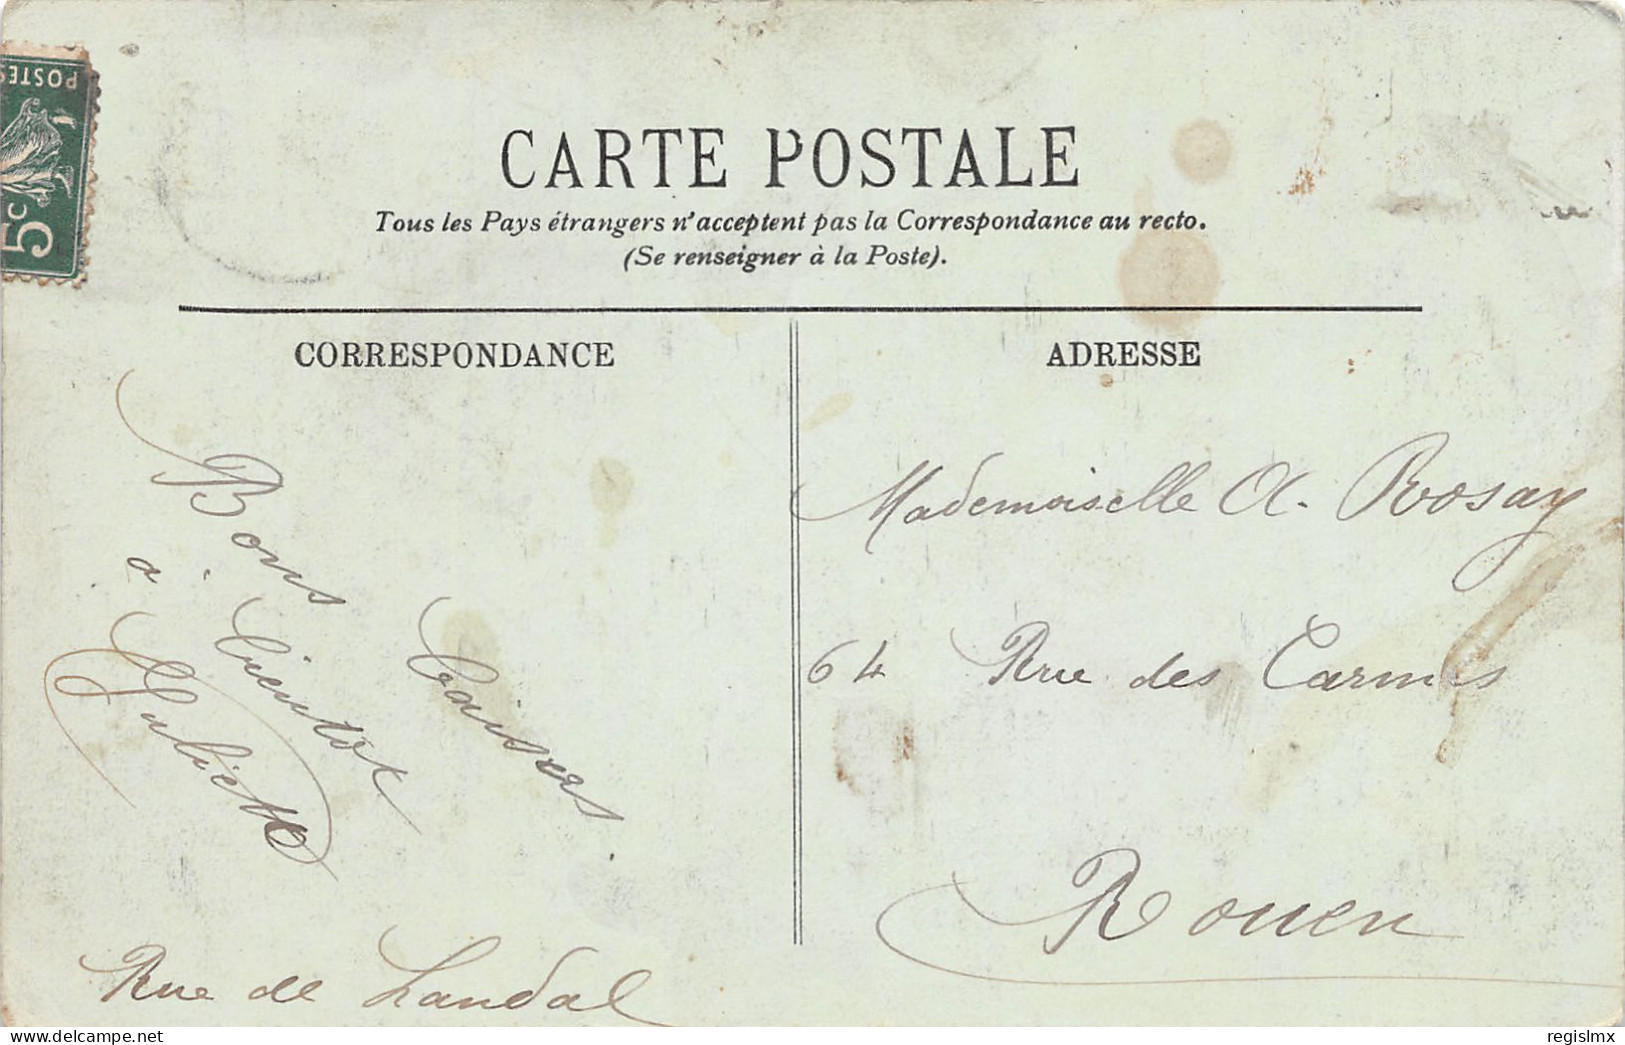 POSTES
5c
CARTE POSTALE
Tous les Pays étrangers n'acceptent pas la Correspondance au recto.
(Se renseigner à la Poste).
CORRESPONDANCE
Bons baisers.
à bientot
Juliette
Rue de Landal
ADRESSE
Mademoiselle A. Rosay
64 Rue des Carmes
Rouen
www.delcampe.net
regislmx